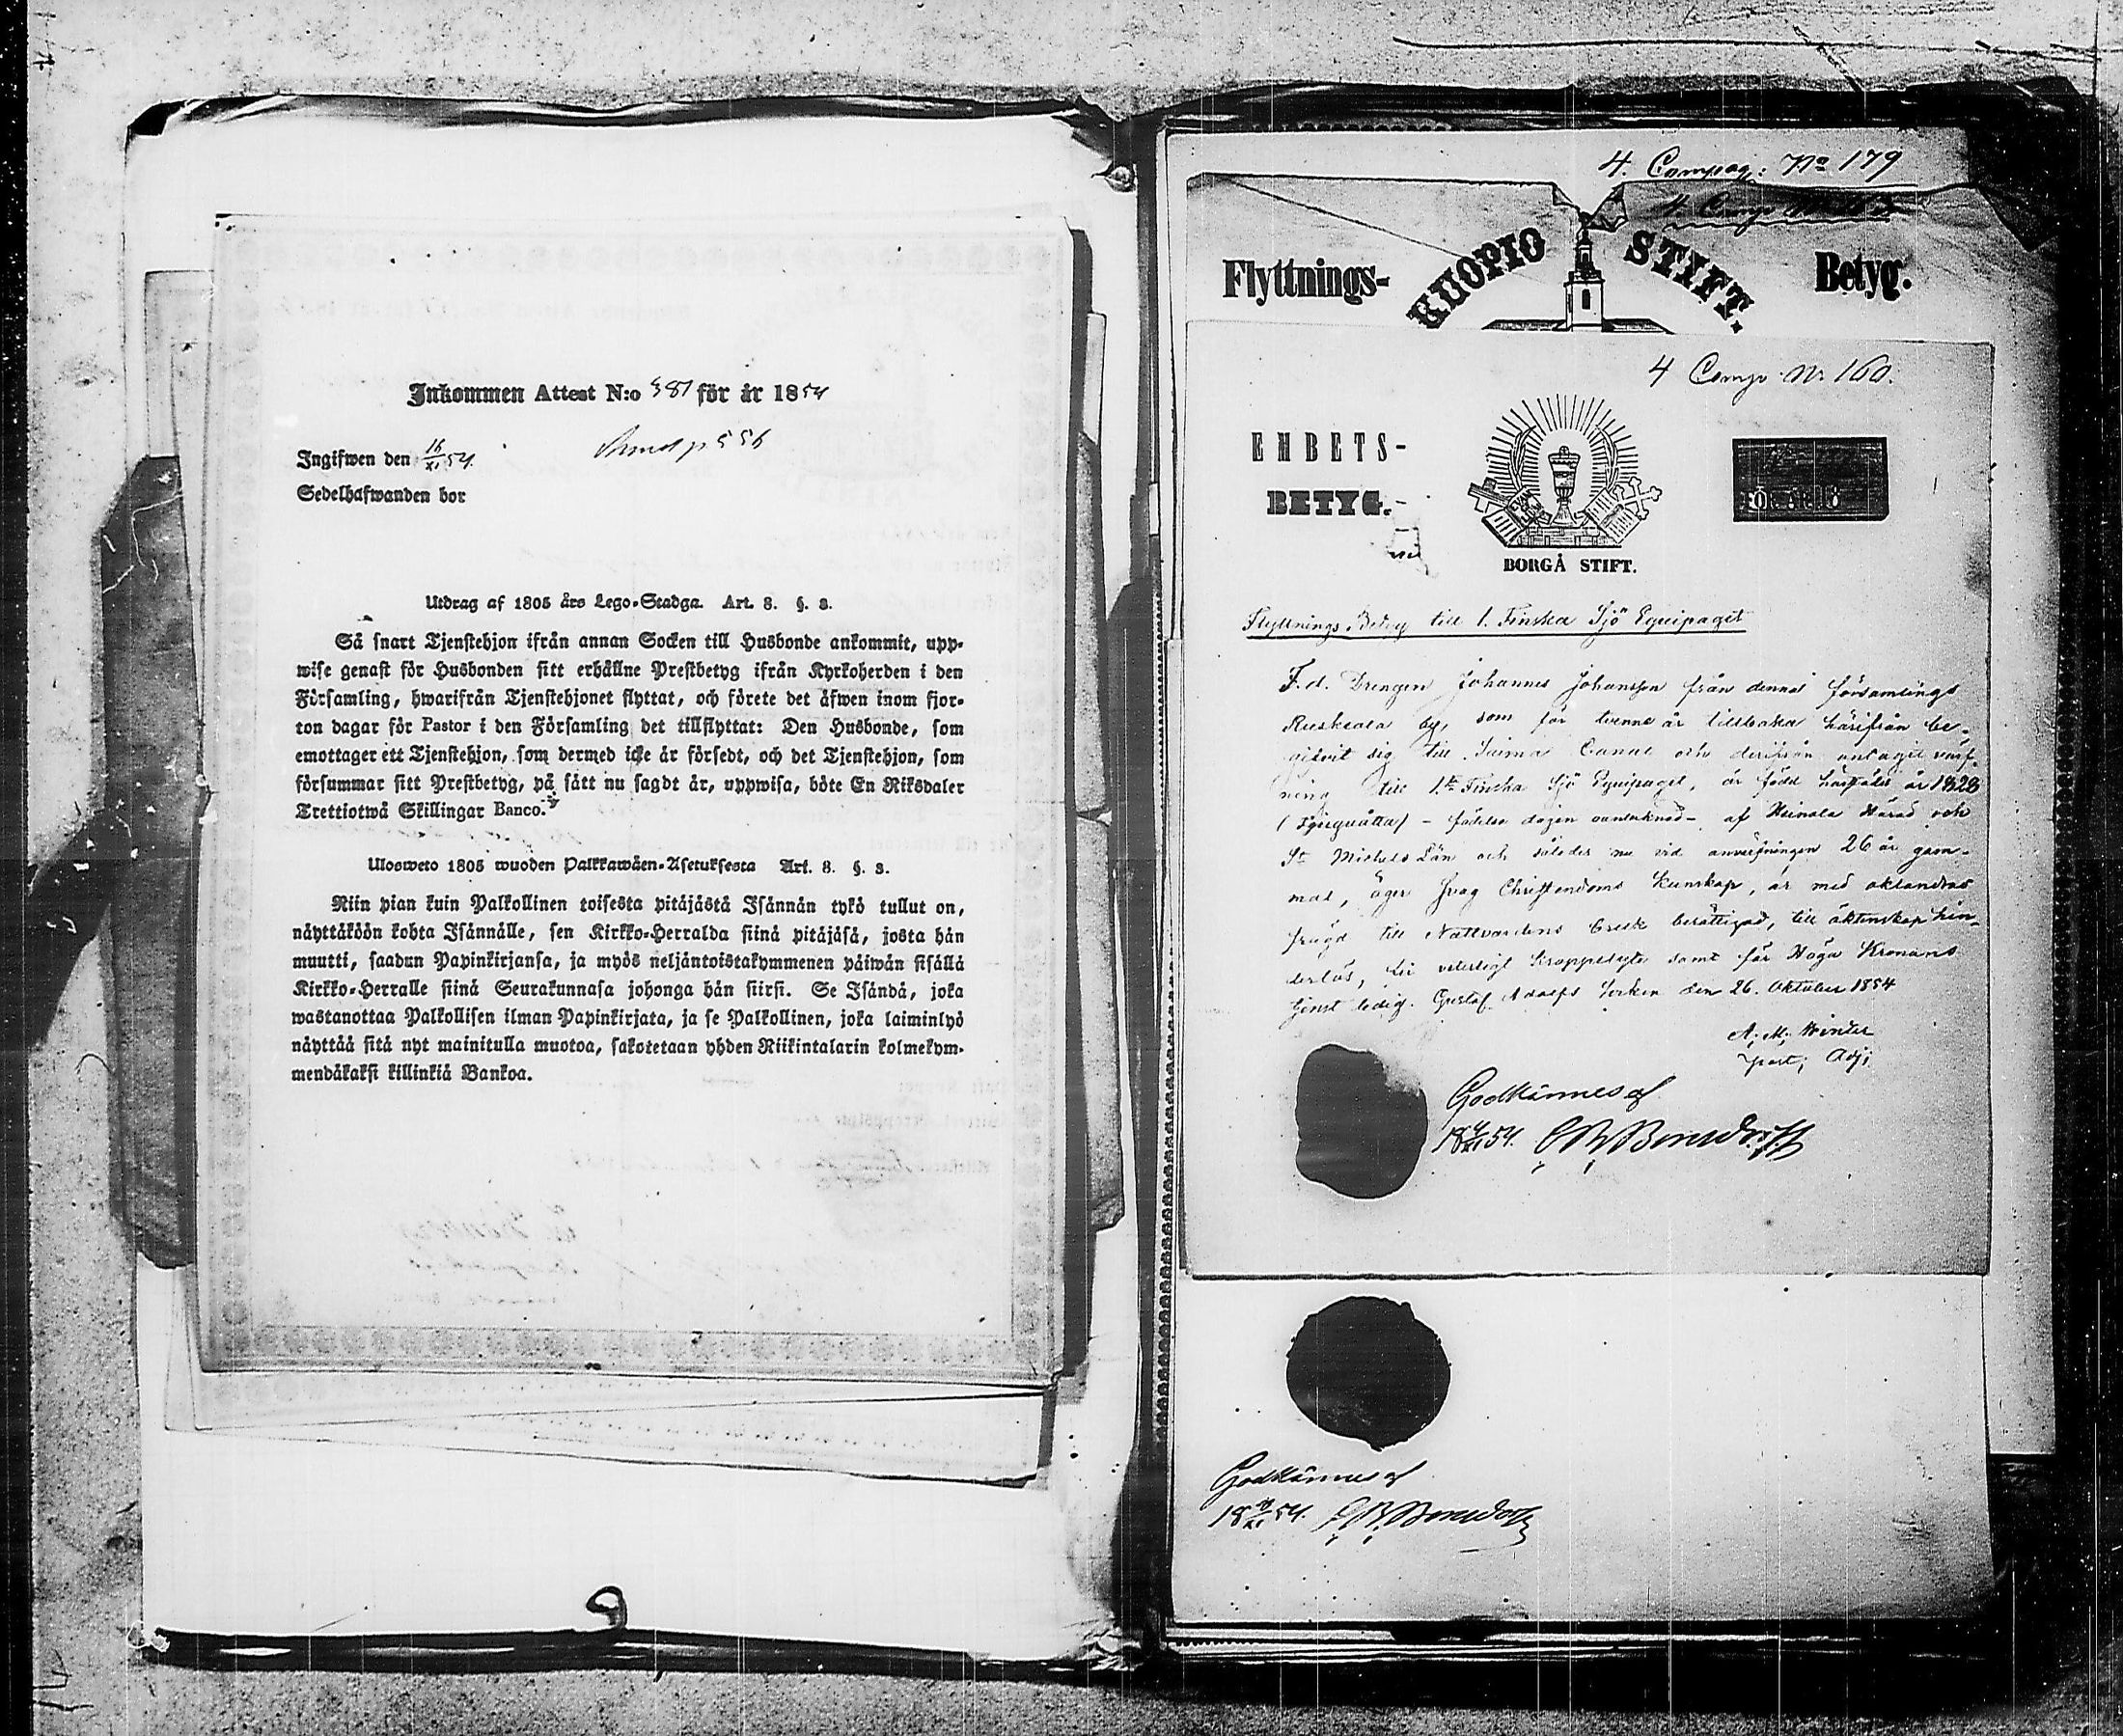 Inkommen Attest N:o 381 för år 1854
Ingifwen den 16/XI 54.
Sedelhafwanden bor
Utdrag af 1805 års Lego-Stadga. Art. 8. §. 3.
Så snart Tjenstehjon ifrån annan Socken till Husbonde ankommit, upp-
wise genast för Husbonden sitt erhållne Prestbetyg ifrån Kyrkoherden i den
Församling, hwarifrån Tjenstehjonet flyttat, och förete det äfwen inom fjor-
ton dagar för Pastor i den Församling det tillflyttat: Den Husbonde, som
emottager ett Tjenstehjon, som dermed icke är försedt, och det Tjenstehjon, som
försummar sitt Prestbetyg, på sätt nu sagdt är, uppwisa, böte En Riksdaler
Trettiotwå Skillingar Banco.
Ulosweto 1805 wuoden Palkkawäen-Asetuksesta Art. 8. §. 3.
Niin pian kuin Palkollinen toisesta pitäjästä Isännän tykö tullut on,
näyttäköön kohta Isännälle, sen Kirkko-Herralda siinä pitäjäsä, josta hän
muutti, saadun Papinkirjansa, ja myös neljäntoistakymmenen päiwän sisällä
Kirkko-Herralle siinä Seurakunnasa johonga hän siirsi. Se Isändä, joka
wastanottaa Palkollisen ilman Papinkirjata, ja se Palkollinen, joka laiminlyö
näyttää sitä nyt mainitulla muotoa, sakotetaan yhden Riikintalarin kolmekym-
mendäkaksi killinkiä Bankoa.
4. Compag: No 179
Flyttnings- KUOPIO STIFT. Betyg.
4 Comp. N: 160.
EMBETS-
BETYG.
FÖR ÅR 18
BORGÅ STIFT.
Flyttnings Betyg till 1. Finska Sjö Equipaget
F. d. Drengen Johannes Johansson från denna församlings
by, som för tvenne år tillbaka härifrån be-
gifvit sig till Saima Canal och derifrån antagit värf-
ning till 1:ta Finska Sjö Equipaget, är född härstädes år 1828
- födelse dagen oantecknad - af Heinola Härad och
St Michels Län och således nu vid anvärfningen 26 år gam-
mal, äger svag Christendoms kunskap, är med oklandrad
frägd till Nattvardens bruk berättigad, till äktenskap hin-
derlös, till veterligt kroppslyte samt för Höga Kronans
tjenst ledig. Gustaf Adolfs Socken den 26. Oktober 1854
A. M. Winter
past. Adj.
Godkännes af
18 XI 54.
Godkännes af
18 XI 54.